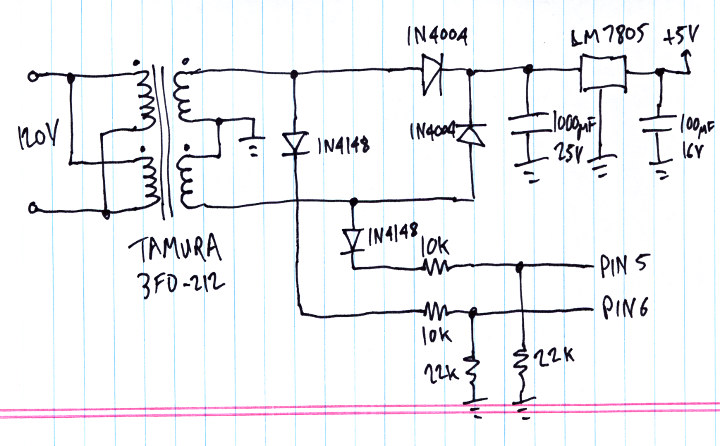 1N4004
LM7805
+5V
120V
1N4148
1N4004
1000µF
25V
100µF
16V
TAMURA
3FD-212
1N4148
10K
PIN 5
PIN 6
10K
22K
22K